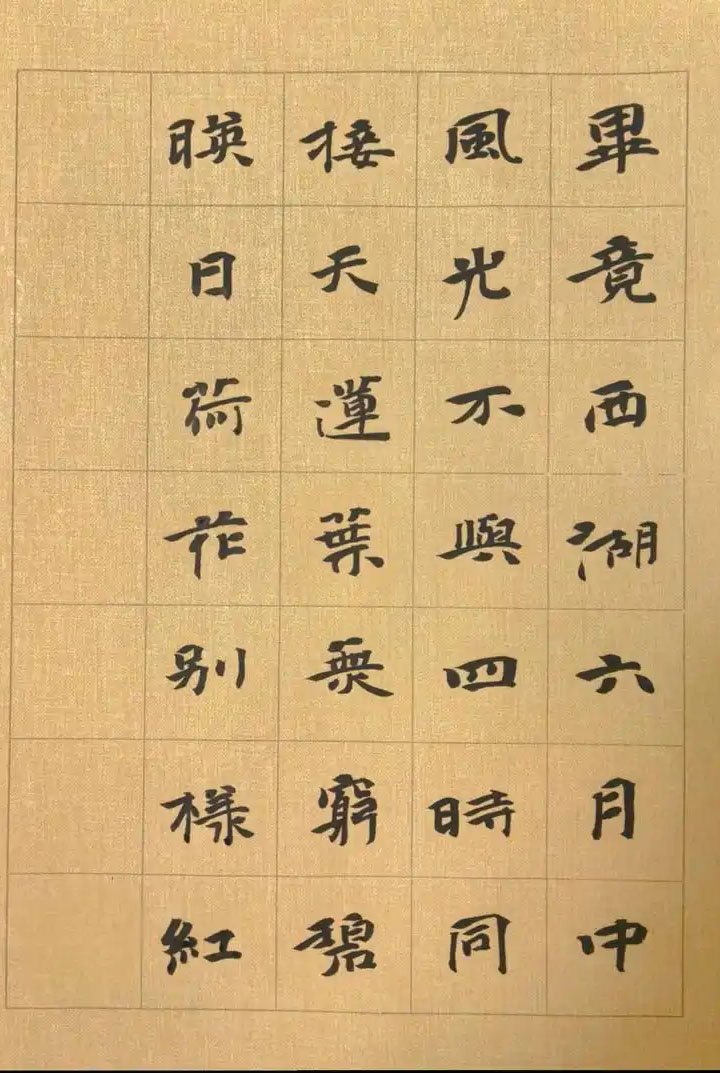 畢竟西湖六月中
風光不與四時同
接天蓮葉無窮碧
暎日荷花別樣紅